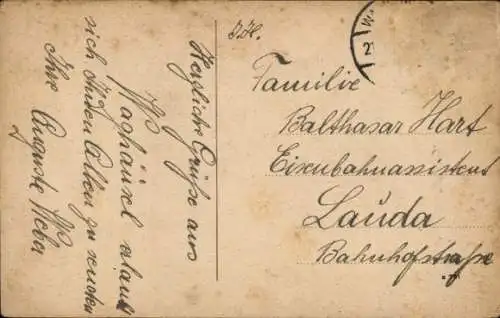 Herzliche Grüße aus
Waghäusel erlaubt
sich Ihnen Allen zu senden
Ihre Auguste Weber
Familie
Balthasar Hart
Eisenbahnassistent
Lauda
Bahnhofstraße